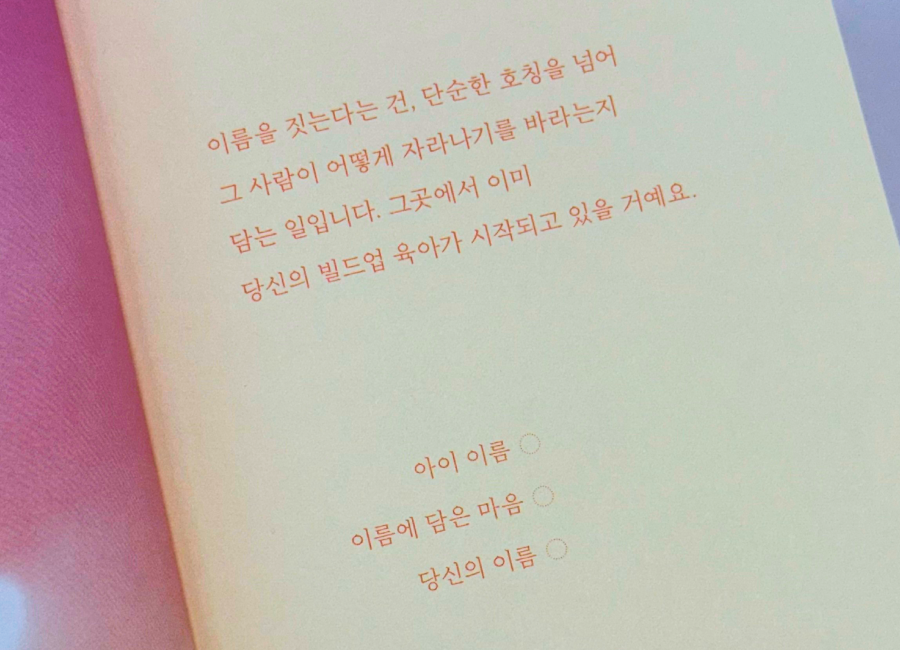 이름을 짓는다는 건, 단순한 호칭을 넘어
그 사람이 어떻게 자라나기를 바라는지
담는 일입니다. 그곳에서 이미
당신의 빌드업 육아가 시작되고 있을 거예요.
아이 이름
이름에 담은 마음
당신의 이름